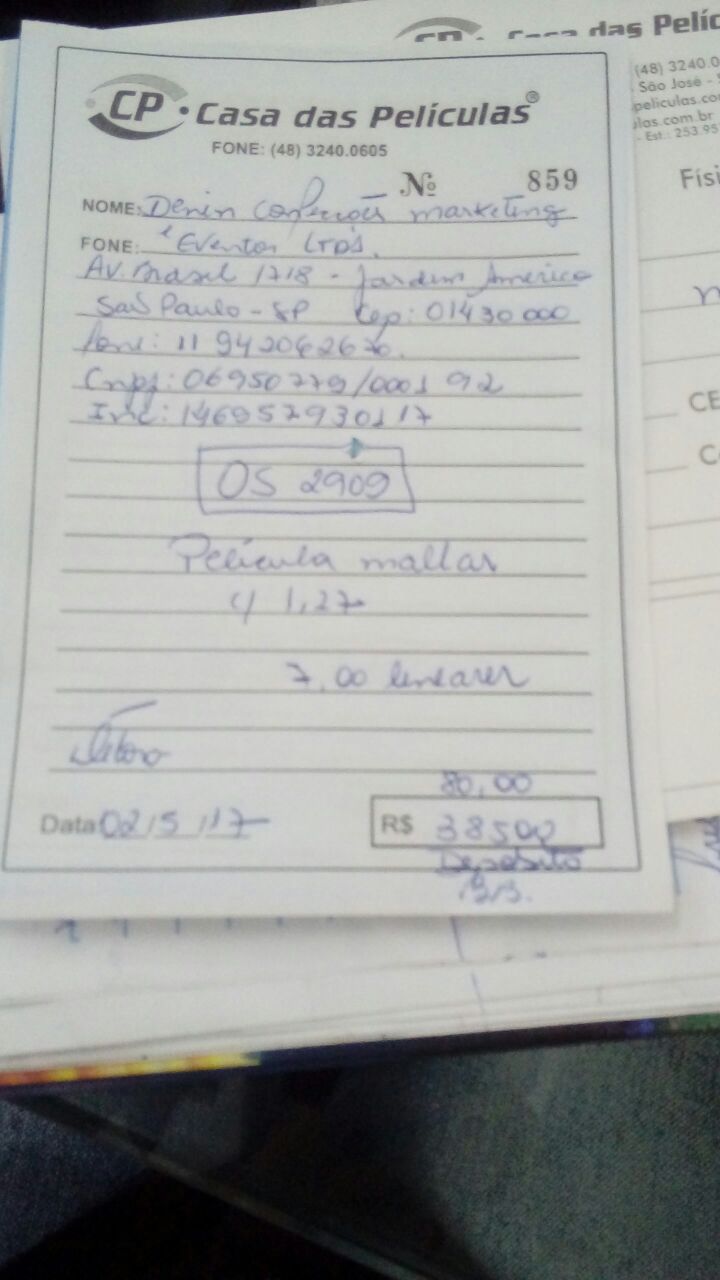 CP • Casa das Películas®
FONE: (48) 3240.0605
Nº 859
NOME: Denin Confecções marketing
FONE: e Eventos Ltda.
Av. Brasil 1718 - Jardim América
São Paulo - SP Cep: 01430000
fone: 11
Cnpj: 06950779/0001 92
Insc: 146957930117
OS 2909
Película maltar
c/ 1,27
7,00 lineares
80,00
Data 02/5/17
R$ 38500
Deposito
BB.
CP • Casa das Pelíc
(48) 3240.0
São José -
peliculas.co
las.com.br
- Est.: 253.95
Físi
CE
C